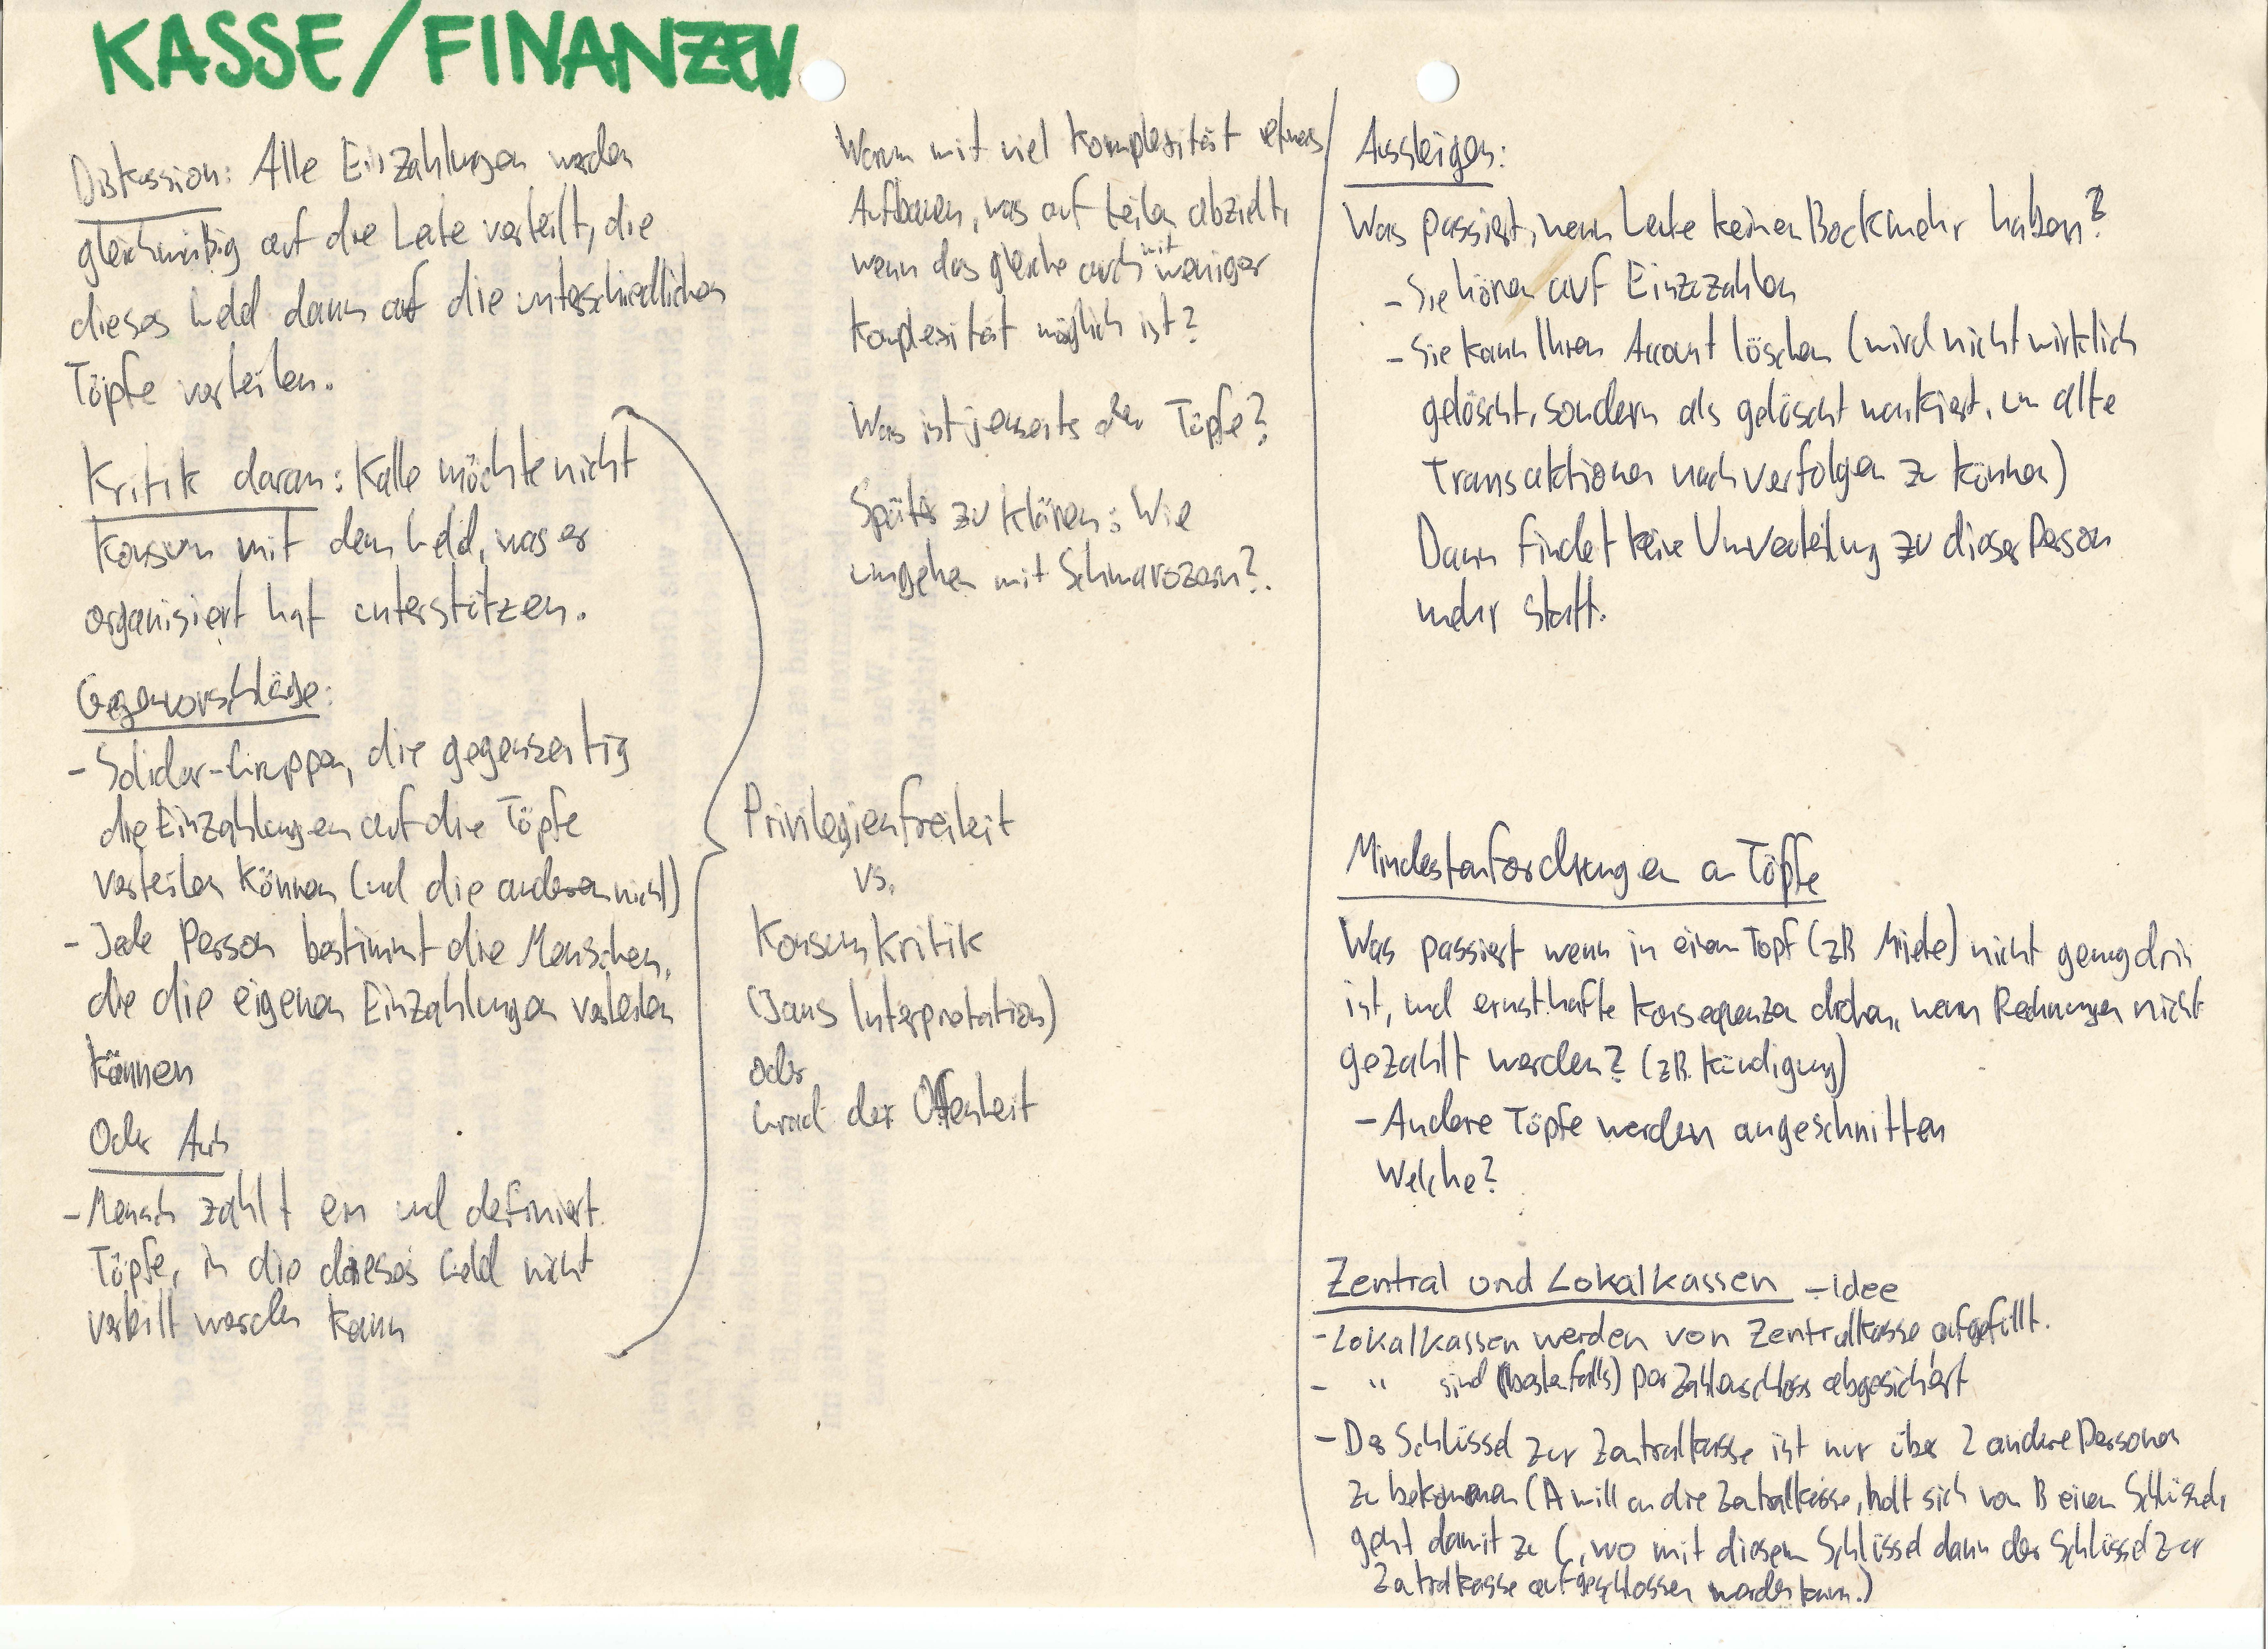 KASSE/FINANZEN
Diskussion: Alle Einzahlungen werden
gleichmäßig auf die Leute verteilt, die
dieses Geld dann auf die unterschiedlichen
Töpfe verteilen.
Kritik daran: Kalle möchte nicht
Konsum mit dem Geld, was er
organisiert hat unterstützen.
Gegenvorschläge:
- Solidar-Gruppen, die gegenseitig
die Einzahlungen auf die Töpfe
verteilen können (und die anderen nicht)
- Jede Person bestimmt die Menschen,
die die eigenen Einzahlungen verteilen
können
Oder Auch
- Mensch zahlt ein und definiert
Töpfe, in die dieses Geld nicht
verteilt werden kann
Privilegienfreiheit
vs.
Konsumkritik
(Jans Interpretation)
oder
Grad der Offenheit
Warum mit viel Komplexität etwas
Aufbauen, was auf teilen abzielt,
wenn das gleiche auch mit weniger
Komplexität möglich ist?
Was ist jenseits der Töpfe?
Später zu klären: Wie
umgehen mit Schmarozern?
Aussteigen:
Was passiert, wenn Leute keinen Bock mehr haben?
- Sie hören auf Einzuzahlen
- Sie kann Ihren Account löschen (wird nicht wirklich
gelöscht, sondern als gelöscht markiert, um alte
Transaktionen nachverfolgen zu können)
Dann findet keine Umverteilung zu dieser Person
mehr statt.
Mindestanforderungen an Töpfe
Was passiert wenn in einem Topf (zB Miete) nicht genug drin
ist, und ernsthafte Konsequenzen drohen, wenn Rechnungen nicht
gezahlt werden? (zB. Kündigung)
- Andere Töpfe werden angeschnitten
Welche?
Zentral und Lokalkassen - Idee
- Lokalkassen werden von Zentralkasse aufgefüllt.
- " sind (bestenfalls) per Zahlenschloss abgesichert
- Der Schlüssel zur Zentralkasse ist nur über 2 andere Personen
zu bekommen (A will an die Zentralkasse, holt sich von B einen Schlüssel,
geht damit zu C, wo mit diesem Schlüssel dann der Schlüssel zur
Zentralkasse aufgeschlossen werden kann.)